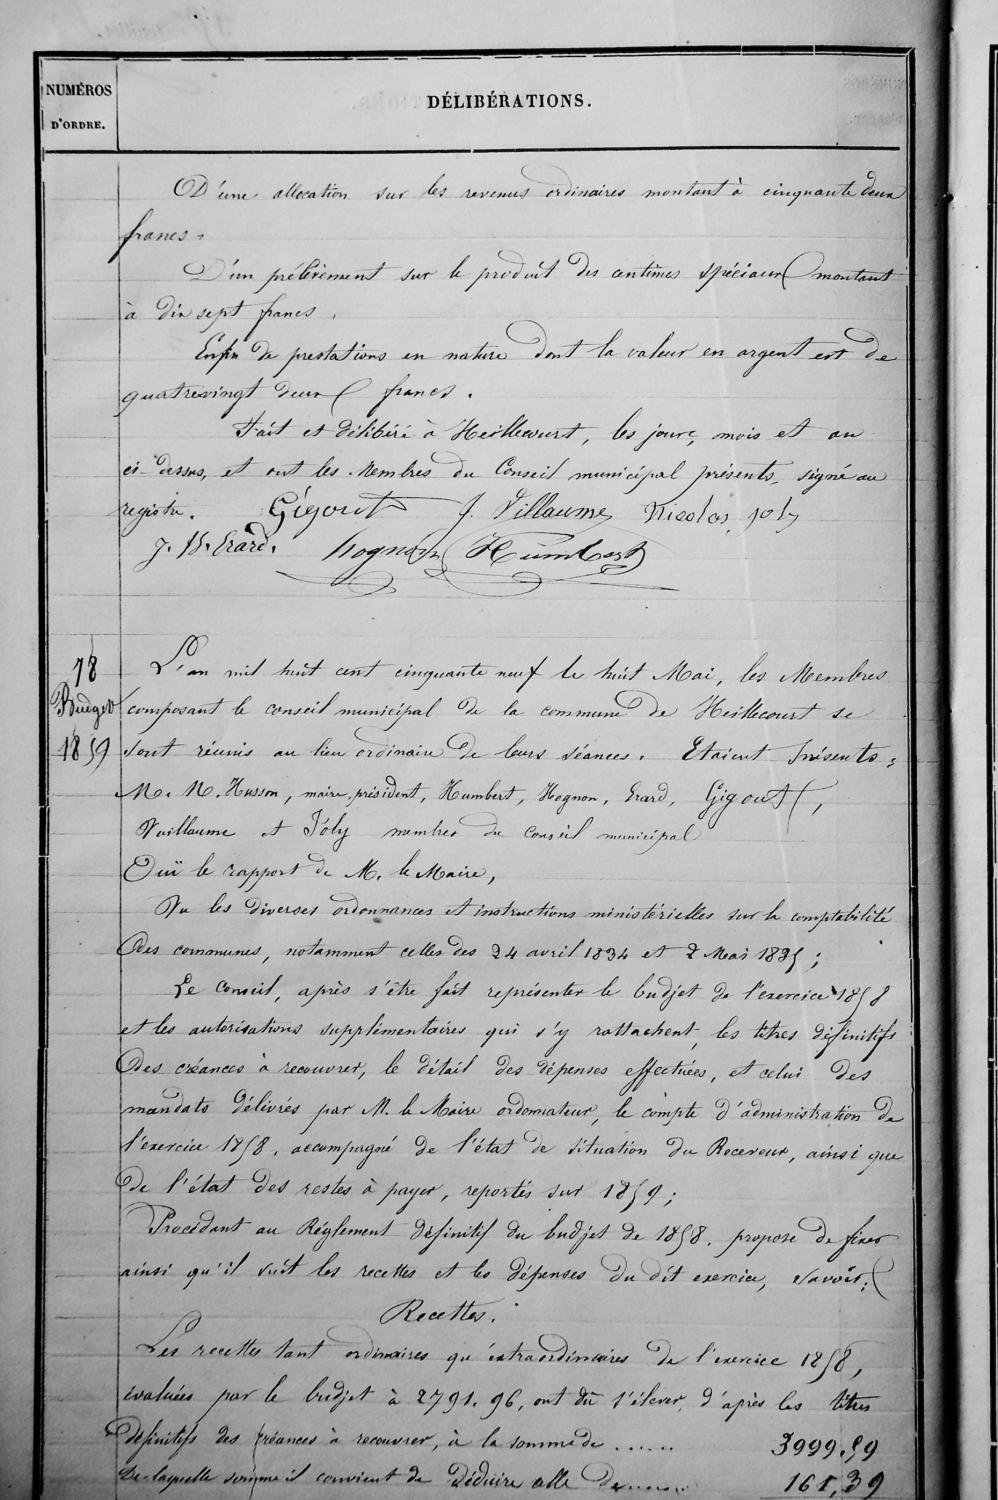 NUMÉROS
D'ORDRE.
DÉLIBÉRATIONS.
D'une allocation sur les revenus ordinaires montant à cinquante deux
francs.
D'un prélèvement sur le produit des centimes spéciaux montant
à dix sept francs.
Enfin de prestations en nature dont la valeur en argent est de
quatrevingt deux francs.
Fait et délibéré à Heillecourt, les jour, mois et an
ci-dessus, et ont les Membres du Conseil municipal présents, signé au
registre. Gigout J. Villaume Nicolas joly
J. B. Erard. hognon Humbert
78
Budget
1859
L'an mil huit cent cinquante neuf le huit Mai, les Membres
composant le conseil municipal de la commune de Heillecourt se
sont réunis au lieu ordinaire de leurs séances. Etaient présents :
M. M. Husson, maire, président, Humbert, Hognon, Erard, Gigout,
Vuillaume et Joly membres du conseil municipal
Ouï le rapport de M. le Maire,
Vu les diverses ordonnances et instructions ministérielles sur la comptabilité
des communes, notamment celles des 24 avril 1834 et 2 Mai 1835 ;
Le Conseil, après s'être fait représenter le budjet de l'exercice 1858
et les autorisations supplémentaires qui s'y rattachent, les titres définitifs
des créances à recouvrer, le détail des dépenses effectuées, et celui des
mandats délivrés par M. le Maire ordonnateur, le compte d'administration de
l'exercice 1858, accompagné de l'état de situation du Receveur, ainsi que
de l'état des restes à payer, reportés sur 1859 ;
Procédant au Réglement définitif du budjet de 1858, propose de fixer
ainsi qu'il suit les recettes et les dépenses du dit exercice, savoir :
Recettes.
Les recettes tant ordinaires qu'extraordinaires de l'exercice 1858,
évaluées par le budjet à 2791.96, ont dû s'élever, d'après les titres
définitifs des créances à recouvrer, à la somme de ...... 3999.59
De laquelle somme il convient de déduire celle de ...... 161,39